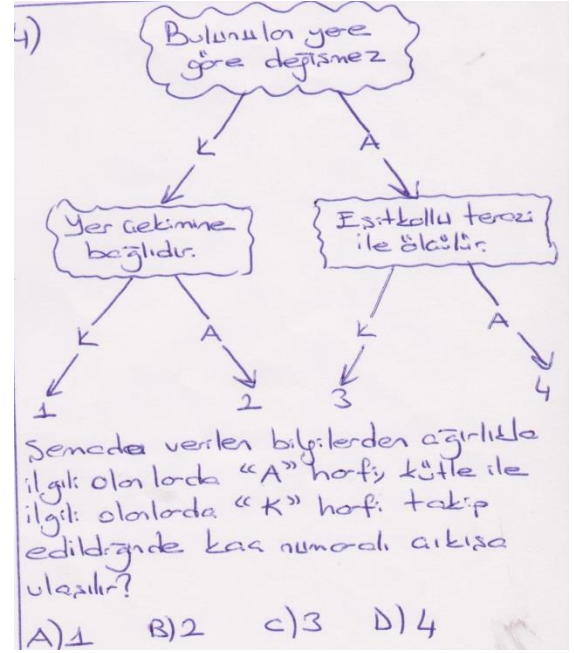 4)
Bulunulan yere
göre değişmez
K
A
Yer Çekimine
bağlıdır.
Eşitkollu terazi
ile ölçülür.
K
A
K
A
1
2
3
4
Şemada verilen bilgilerden ağırlıkla
ilgili olanlarda "A" harfi, kütle ile
ilgili olanlarda "K" harfi takip
edildiğinde kaç numaralı çıkışa
ulaşılır?
A)1 B)2 C)3 D)4